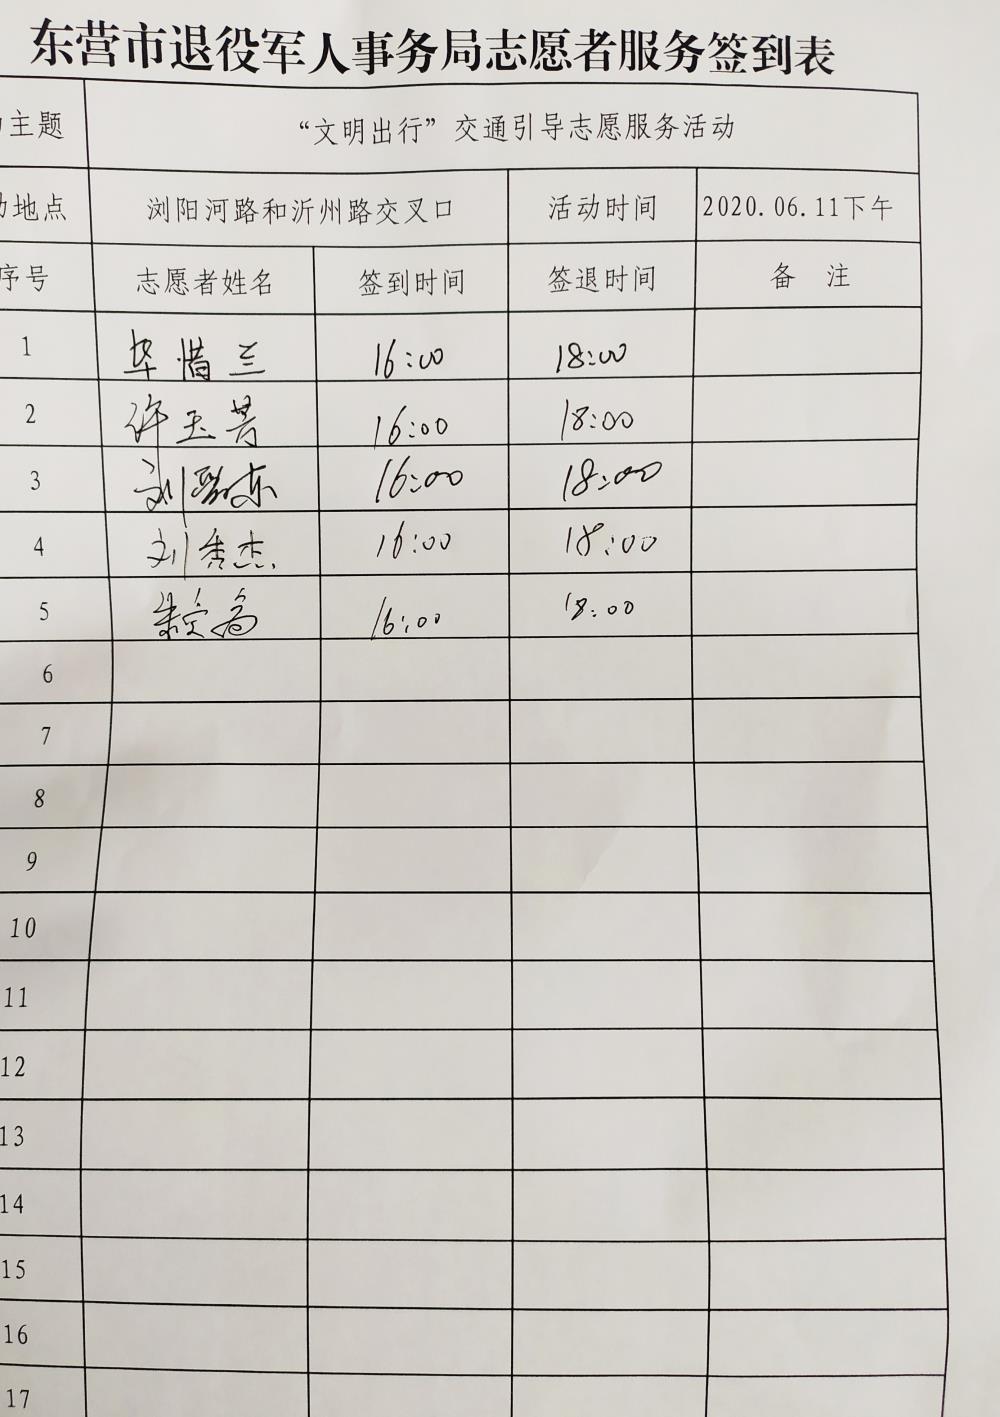 东营市退役军人事务局志愿者服务签到表
主题 “文明出行”交通引导志愿服务活动
地点 浏阳河路和沂州路交叉口 活动时间 2020.06.11下午
序号 志愿者姓名 签到时间 签退时间 备 注
1 毕惜兰 16:00 18:00
2 许玉菁 16:00 18:00
3 刘 东 16:00 18:00
4 刘秀杰 16:00 18:00
5 16:00 18:00
6
7
8
9
10
11
12
13
14
15
16
17